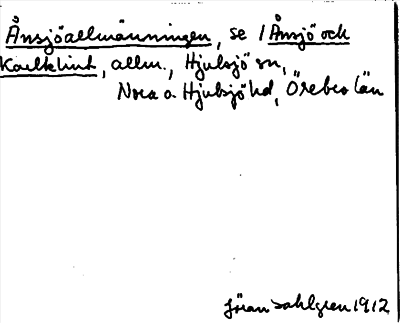 Ånsjöallmänningen, se 1 Ånsjö och
Kaelklint, allm., Hjulsjö sn,
Nora o. Hjulsjö hd, Örebro län
Jöran Sahlgren 1912